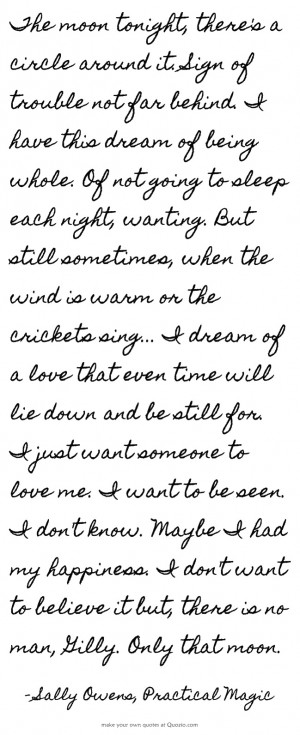 The moon tonight, there's a
circle around it. Sign of
trouble not far behind. I
have this dream of being
whole. Of not going to sleep
each night, wanting. But
still sometimes, when the
wind is warm or the
crickets sing... I dream of
a love that even time will
lie down and be still for.
I just want someone to
love me. I want to be seen.
I don't know. Maybe I had
my happiness. I don't want
to believe it but, there is no
man, Gilly. Only that moon.
-Sally Owens, Practical Magic
make your own quotes at Quozio.com